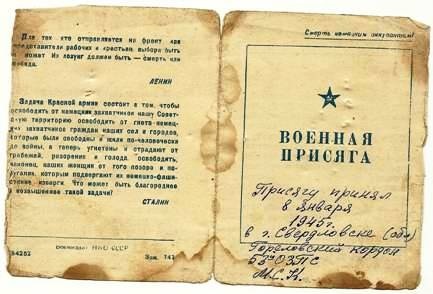 Для тех кто отправляется на фронт как
представители рабочих и крестьян, выбора быть
не может. Их лозунг должен быть — смерть или
победа.
ЛЕНИН
Задача Красной армии состоит в том, чтобы
освободить от немецких захватчиков нашу Совет-
скую территорию освободить от гнета немец-
ких захватчиков граждан наших сел и городов,
которые были свободны и жили по-человечески
до войны, а теперь угнетены и страдают от
грабежей, разорения и голода, освободить,
наконец, наших женщин от того позора и по-
ругания, которым подвергают их немецко-фашист-
ские изверги. Что может быть благороднее
и возвышеннее такой задачи?
СТАЛИН
НКО СССР
Зак. 147
Смерть немецким оккупантам!
ВОЕННАЯ
ПРИСЯГА
Присягу принял
8 января
1945г.
в г. Свердловске (обл)
Гореловский кордон
ОЗПС
М.С.К.